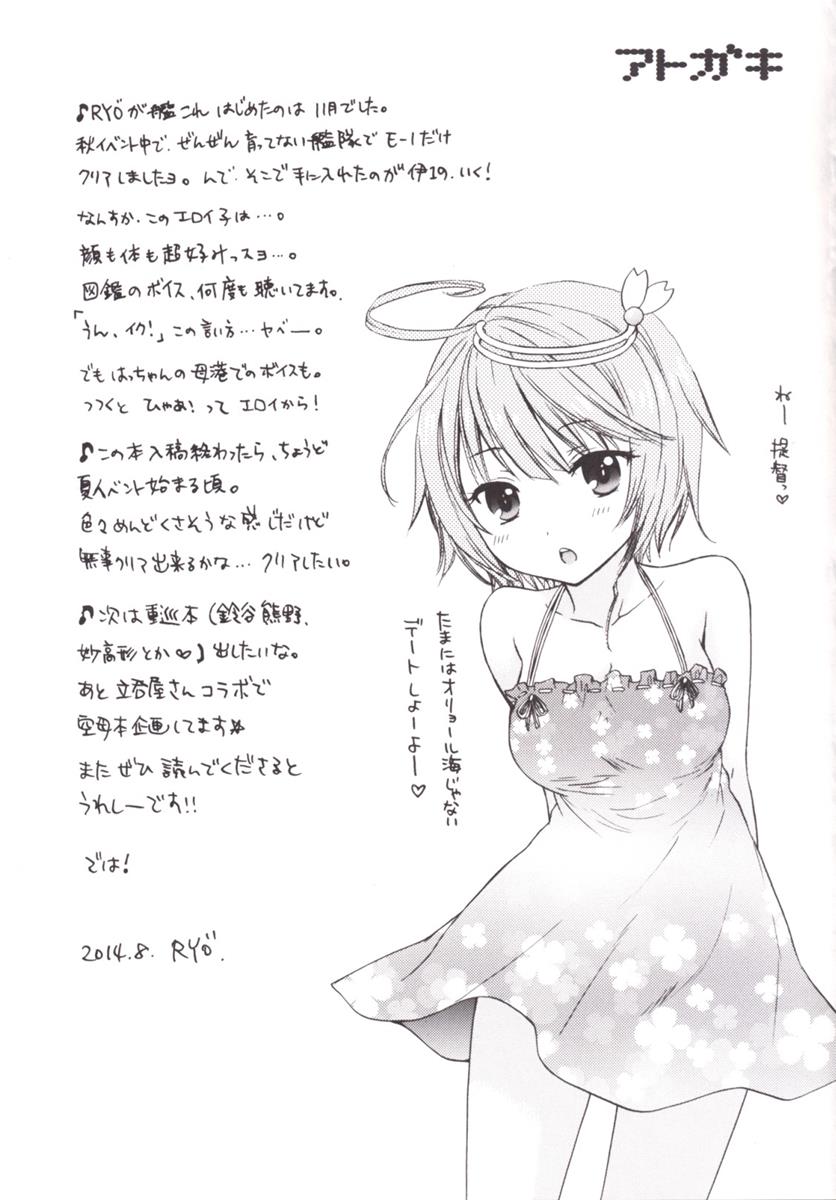 アトガキ
♪RYOが艦これ はじめたのは 11月でした。
秋イベント中で、ぜんぜん 育ってない艦隊で E-1だけ
クリアしましたョ。んで、そこで手に入れたのが 伊19、いく!
なんすか、このエロイ子は…。
顔も体も超好みっスョ…。
図鑑のボイス、何度も聴いてます。
「うん、イク!」この言い方…ヤベー。
でも はっちゃんの母港でのボイスも。
つつくと ひゃあ!って エロイから!
♪この本入稿終わったら、ちょうど
夏イベント始まる頃。
色々めんどくさそうな感じだけど
無事クリア出来るかな… クリアしたい。
♪次は重巡本(鈴谷熊野、
妙高形とか♡)出したいな。
あと 立呑屋さん コラボで
空母本企画してます☆
また ぜひ 読んでくださると
うれしーです!!
では!
2014.8. RYO
ねー
提督っ♡
たまにはオリョール海じゃない
デートしよーよー♡